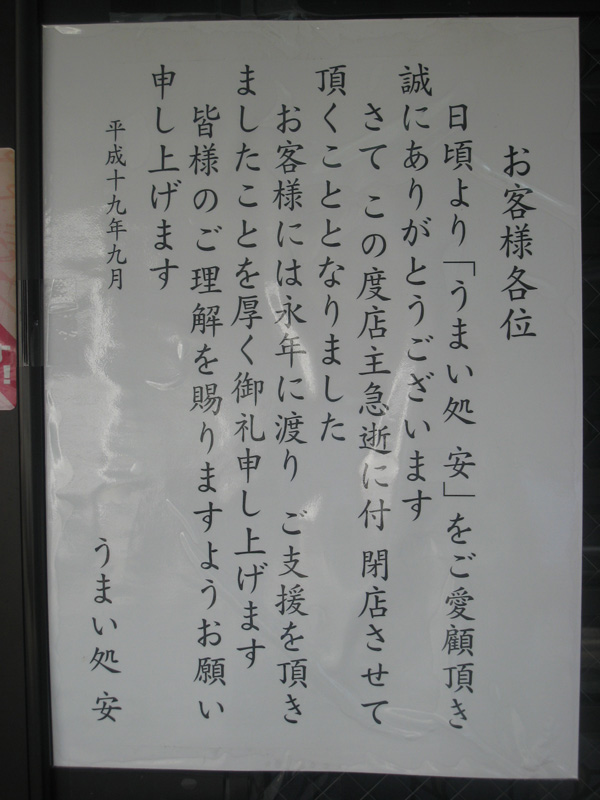 お客様各位
日頃より「うまい処 安」をご愛顧頂き
誠にありがとうございます
さて この度店主急逝に付 閉店させて
頂くこととなりました
お客様には永年に渡り ご支援を頂き
ましたことを厚く御礼申し上げます
皆様のご理解を賜りますようお願い
申し上げます
平成十九年九月
うまい処 安